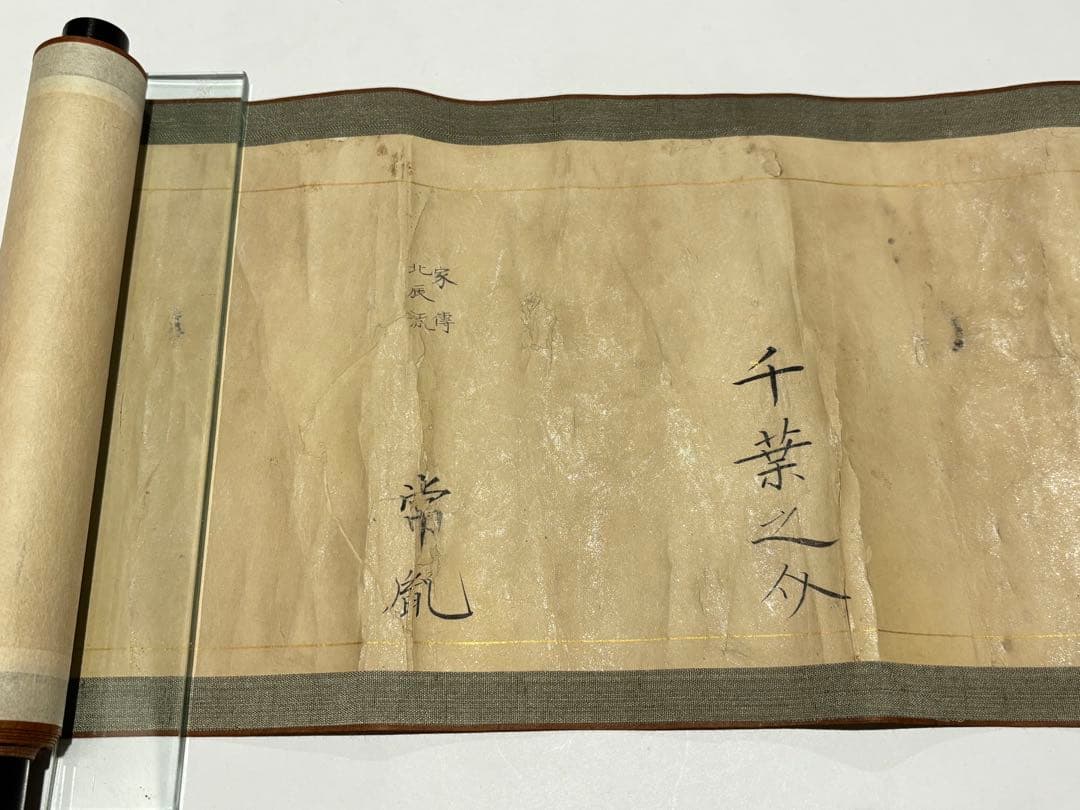 千葉之介
家傳
北辰流
常胤